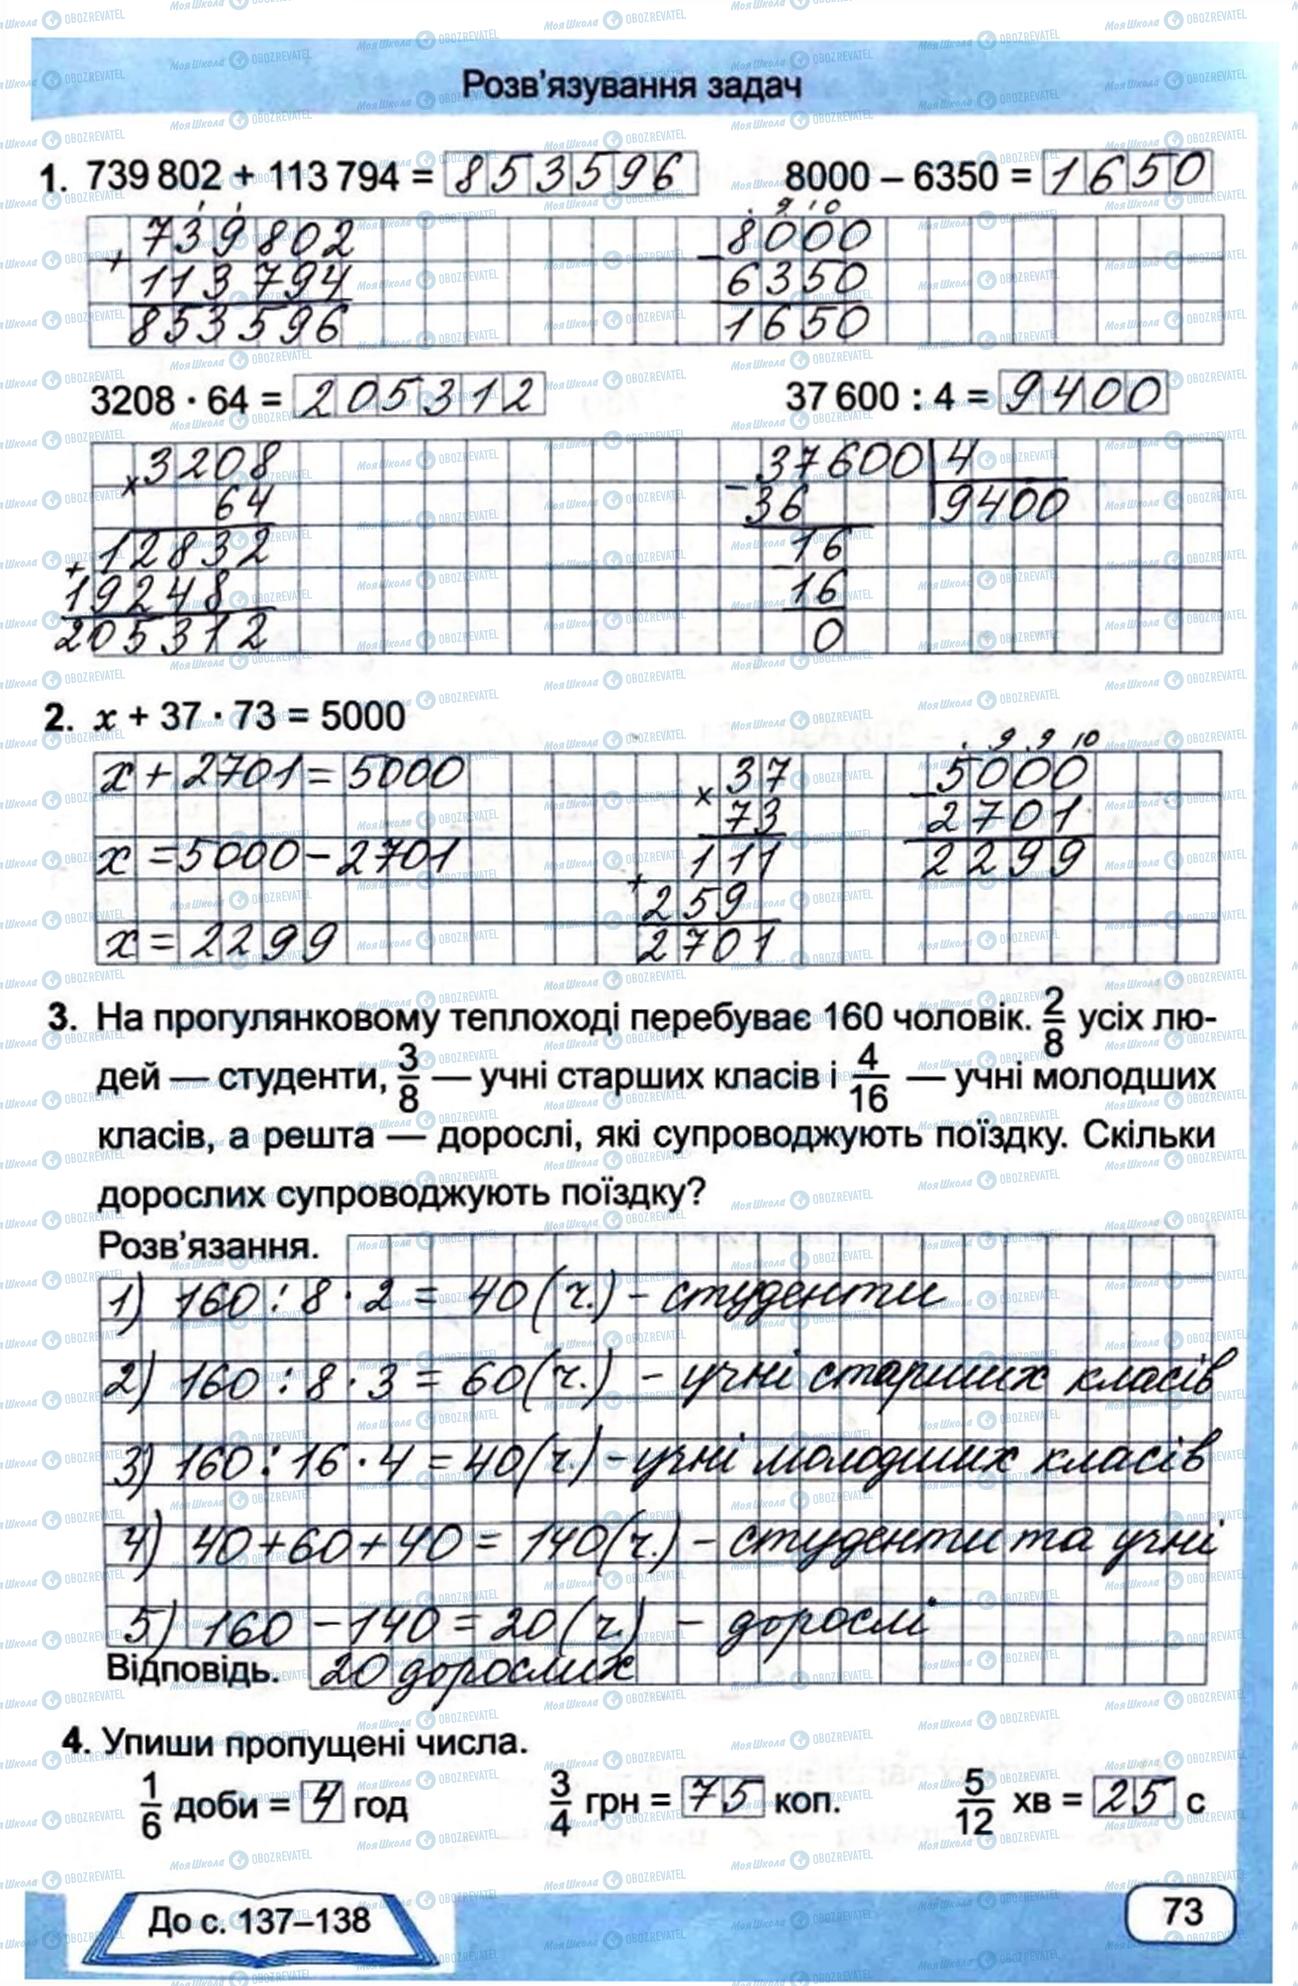 Розв'язування задач
1. 739 802 + 113 794 = 853596 8000 – 6350 = 1650
739802
+
113794
853596
. 9 10
8000
–
6350
1650
3208 · 64 = 205312 37 600 : 4 = 9400
×3208
64
12832
+
19248
205312
–37600 4
36 9400
16
16
0
2. x + 37 · 73 = 5000
x + 2701 = 5000
x = 5000 – 2701
x = 2299
37
×
73
111
+
259
2701
. 9 9 10
5000
–
2701
2299
3. На прогулянковому теплоході перебуває 160 чоловік. 2/8 усіх лю-
дей — студенти, 3/8 — учні старших класів і 4/16 — учні молодших
класів, а решта — дорослі, які супроводжують поїздку. Скільки
дорослих супроводжують поїздку?
Розв'язання.
1) 160 : 8 · 2 = 40 (ч.) – студенти
2) 160 : 8 · 3 = 60 (ч.) – учні старших класів
3) 160 : 16 · 4 = 40 (ч.) – учні молодших класів
4) 40 + 60 + 40 = 140 (ч.) – студенти та учні
5) 160 – 140 = 20 (ч.) – дорослі
Відповідь. 20 дорослих
4. Упиши пропущені числа.
1/6 доби = 4 год 3/4 грн = 75 коп. 5/12 хв = 25 с
До с. 137–138
73
МояШкола OBOZREVATEL